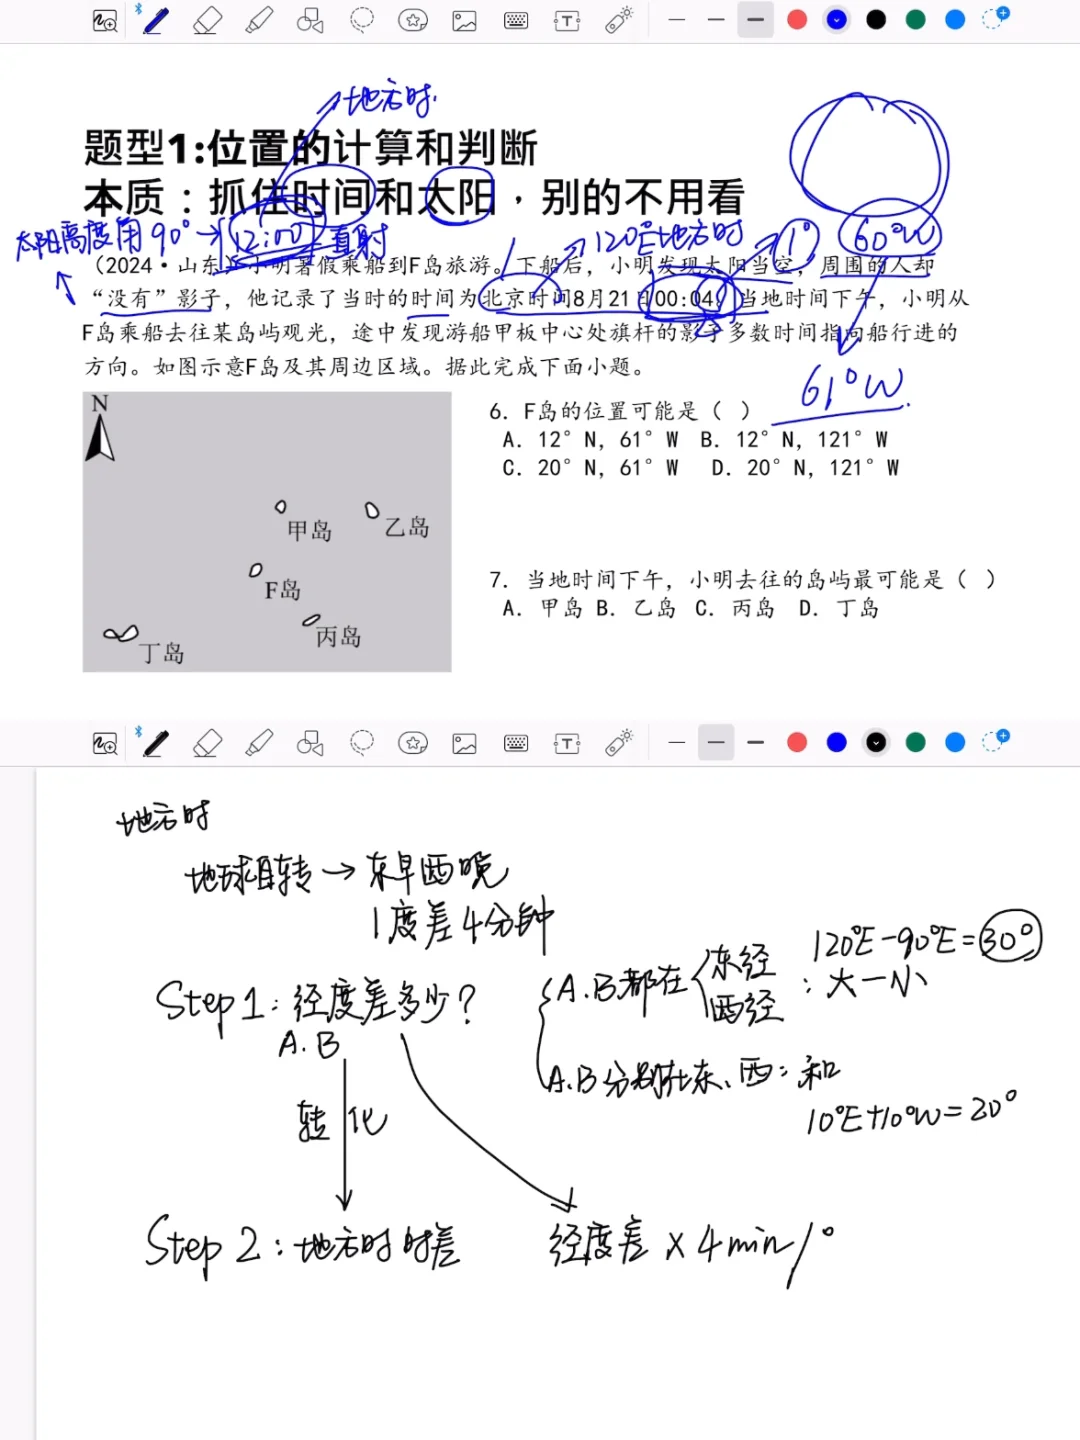 地方时
题型1:位置的计算和判断
本质：抓住时间和太阳，别的不用看
太阳高度角90°→12:00 直射
120°E地方时
1°
60°W
（2024·山东）小明暑假乘船到F岛旅游。下船后，小明发现太阳当空，周围的人却
“没有”影子，他记录了当时的时间为北京时间8月21日00:04。当地时间下午，小明从
F岛乘船去往某岛屿观光，途中发现游船甲板中心处旗杆的影子多数时间指向船行进的
方向。如图示意F岛及其周边区域。据此完成下面小题。
61°W
N
甲岛
乙岛
F岛
丙岛
丁岛
6. F岛的位置可能是（ ）
A. 12°N, 61°W B. 12°N, 121°W
C. 20°N, 61°W D. 20°N, 121°W
7. 当地时间下午，小明去往的岛屿最可能是（ ）
A. 甲岛 B. 乙岛 C. 丙岛 D. 丁岛
地方时
地球自转→东早西晚
1度差4分钟
120°E-90°E=30°
Step1:经度差多少?
A.B
A.B都在
东经
西经
:大一小
A.B分别在东、西:和
10°E+10°W=20°
转化
Step 2:地方时时差
经度差×4min/°